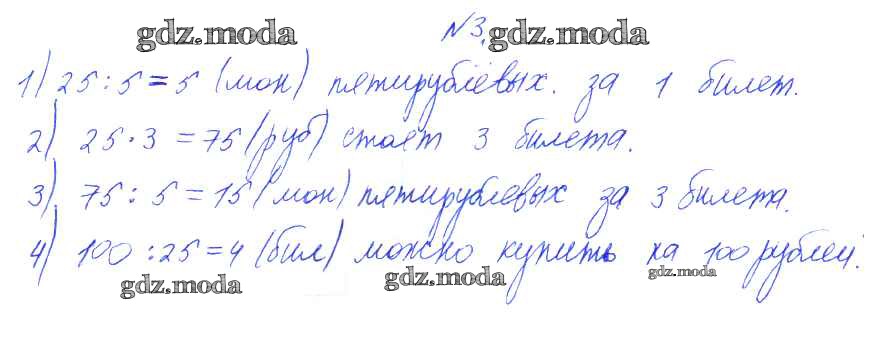 №3.
gdz.moda gdz.moda
1) 25 : 5 = 5 (мон) пятирублёвых. за 1 билет.
2) 25 · 3 = 75 (руб) стоет 3 билета.
3) 75 : 5 = 15 (мон) пятирублевых за 3 билета.
4) 100 : 25 = 4 (бил) можно купить на 100 рублей.
gdz.moda gdz.moda gdz.moda